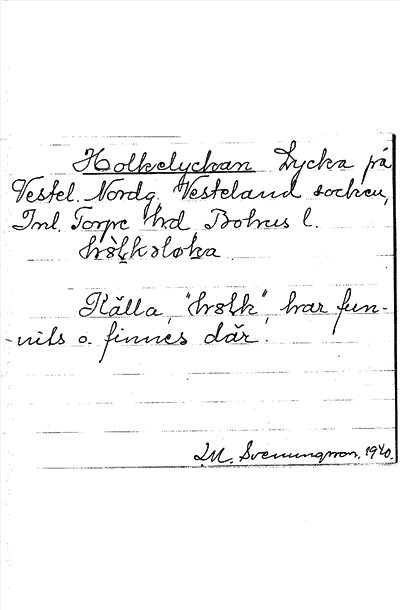 Holkelyckan Lycka på
Vestel. Nordg. Vesteland socken,
Inl. Torpe hrd Bohus l.
Källa, "holk", har fun-
-nits o. finnes där.
M. Svenungsson, 1940.